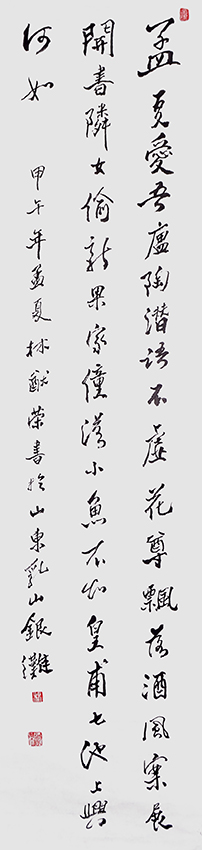 孟夏愛吾廬陶潛語不虛花尊飄落酒風案展
開書隣女偷新果家僮漉小魚不知皇甫七池上興
何如 甲午年孟夏林猷榮書於山東乳山銀灘